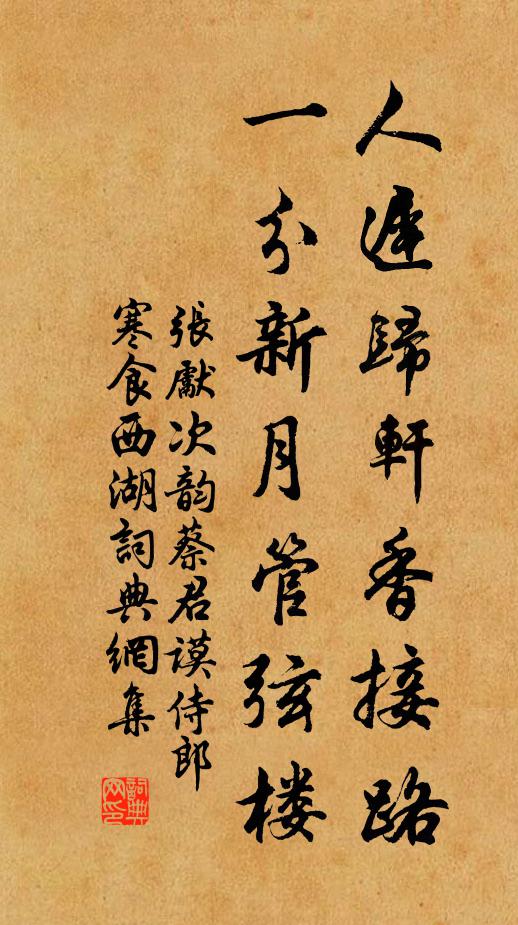 人遲歸軒香接路
一分新月管弦楼
張獻次韵蔡君謨侍郎
寒食西湖詞典網集
詞典网印